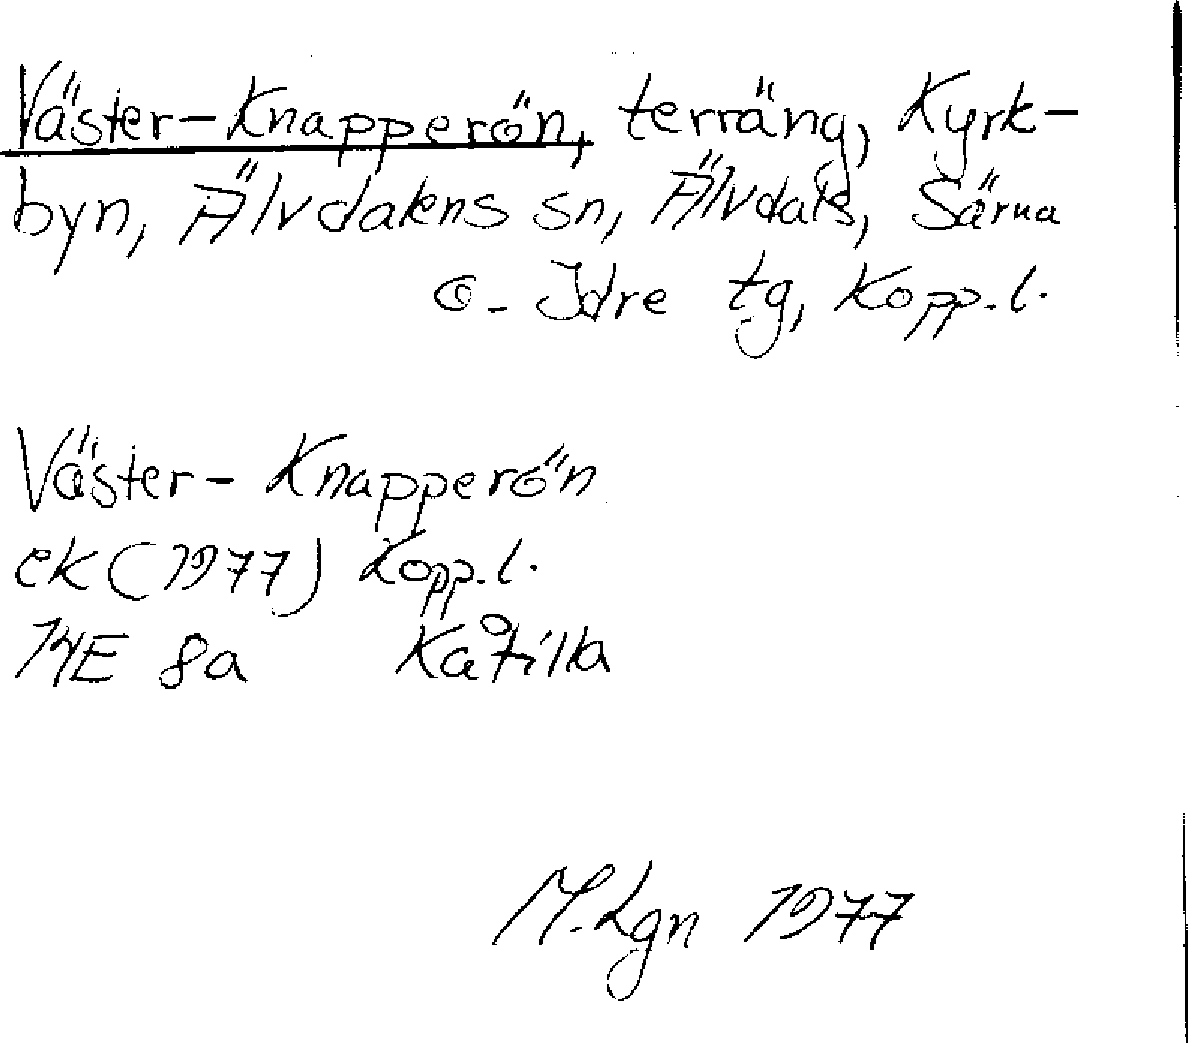 Väster-Knapperön, terräng, Kyrk-
byn, Älvdalens sn, Älvdals, Särna
o. Idre tg, Kopp.l.
Väster-Knapperön
ek (1977) Kopp.l.
14E 8a Kåtilla
M.Lgn 1977